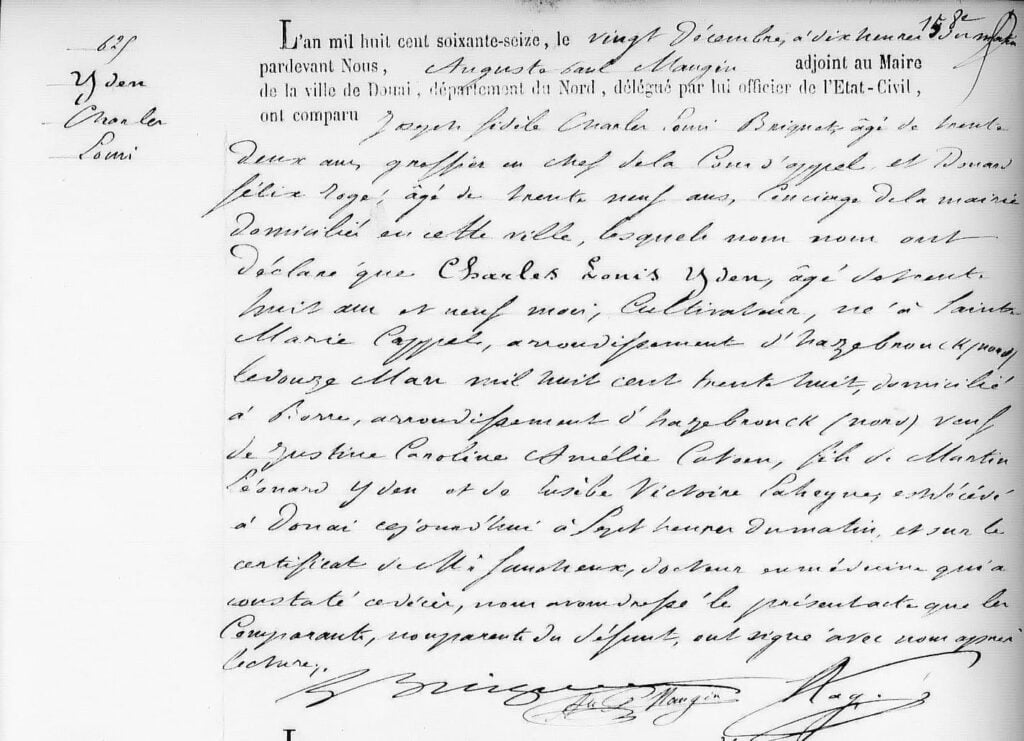 158e
625
Yden
Charles
Louis
L'an mil huit cent soixante-seize, le vingt Décembre, à dix heures du matin
pardevant Nous, Auguste Paul Maugin adjoint au Maire
de la ville de Douai, département du Nord, délégué par lui officier de l'Etat-Civil,
ont comparu Joseph fidèle Charles Louis Briquet, âgé de trente
deux ans, greffier en chef de la Cour d'appel, et Edouard
félix Rogé, âgé de trente neuf ans, Concierge de la mairie
domiciliés en cette ville, lesquels nous ont
déclaré que Charles Louis Yden, âgé de trente
huit ans et neuf mois, Cultivateur, né à Sainte
Marie Cappel, arrondissement d'hazebrouck (nord)
le douze Mars mil huit cent trente huit, domicilié
à Borre, arrondissement d'hazebrouck (nord) veuf
de Justine Caroline Amélie, fils de Martin
Léonard Yden et de Eusèbe Victoire, est décédé
à Douai cejourd'hui à Sept heures du matin, et sur le
certificat de Mr, docteur en médecine qui a
constaté ce décès, nous avons dressé le présent acte que les
Comparants, non parents du défunt, ont signé avec nous après
lecture.
Maugin
L